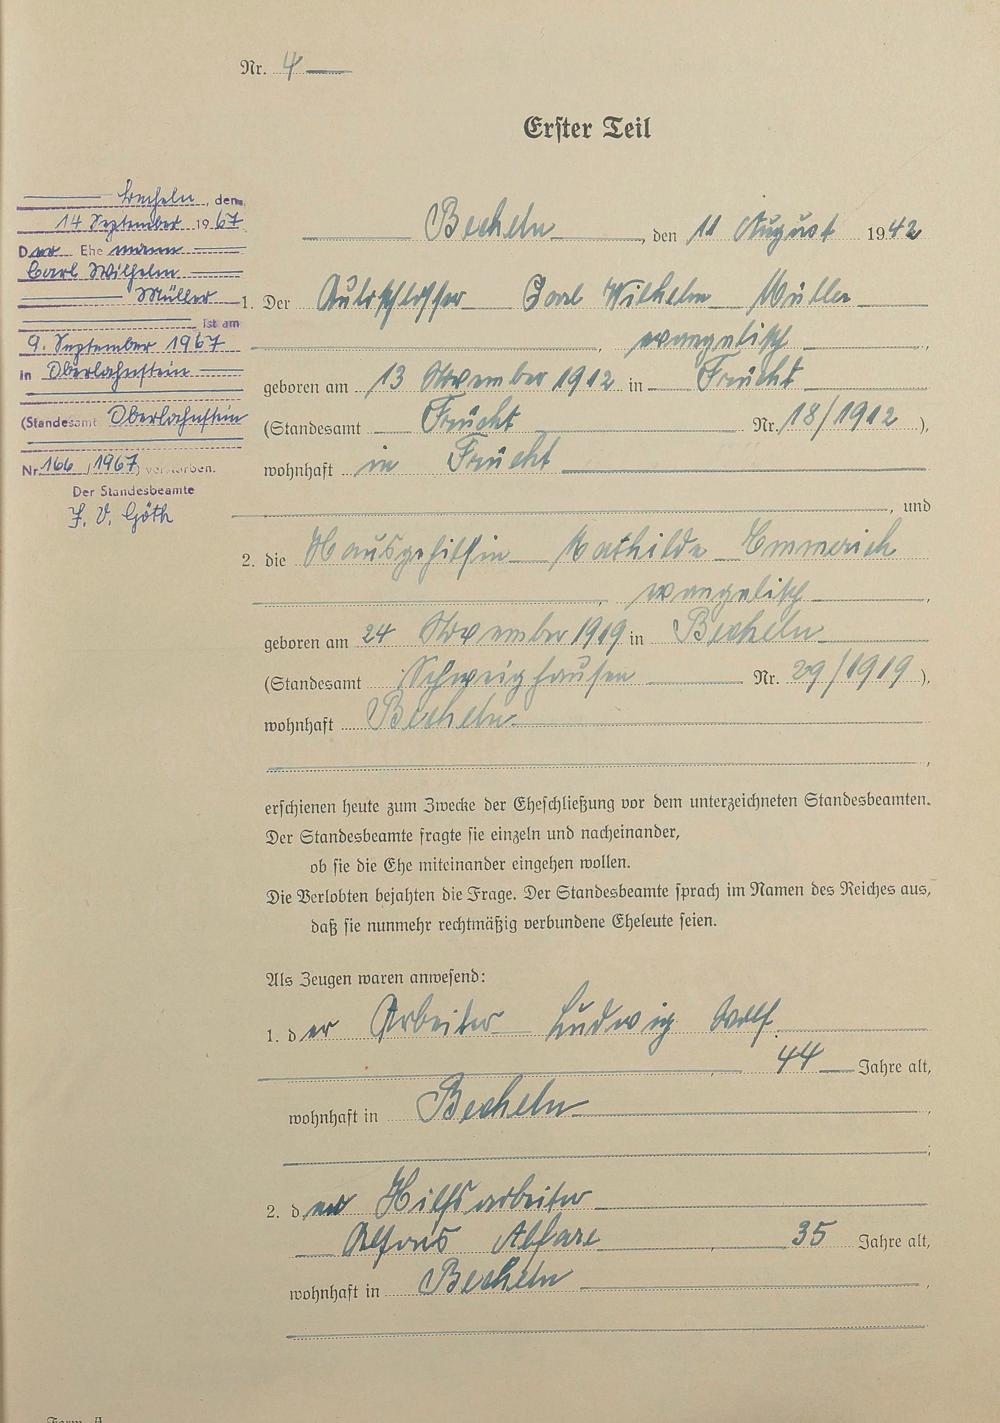 Nr. 4
Erster Teil
Becheln, den
14 September 1967
Der Ehemann
Carl Wilhelm
Müller
ist am
9. September 1967
in Oberlahnstein
(Standesamt Oberlahnstein
Nr. 166/1967) verstorben.
Der Standesbeamte
J. V. Göth
Becheln, den 11 August 1942
1. Der Autoschlosser Carl Wilhelm Müller
, evangelisch,
geboren am 13 November 1912 in Frücht
(Standesamt Frücht Nr. 18/1912),
wohnhaft in Frücht
, und
2. die Hausgehilfin Mathilde Emmerich
, evangelisch,
geboren am 24 November 1919 in Becheln
(Standesamt Schweighausen Nr. 29/1919).
wohnhaft Becheln
,
erschienen heute zum Zwecke der Eheschließung vor dem unterzeichneten Standesbeamten.
Der Standesbeamte fragte sie einzeln und nacheinander,
ob sie die Ehe miteinander eingehen wollen.
Die Verlobten bejahten die Frage. Der Standesbeamte sprach im Namen des Reiches aus,
daß sie nunmehr rechtmäßig verbundene Eheleute seien.
Als Zeugen waren anwesend:
1. der Arbeiter Ludwig Wolf
, 44 Jahre alt,
wohnhaft in Becheln,
;
2. der Hilfsarbeiter
Alfons, 35 Jahre alt,
wohnhaft in Becheln,
Form. A